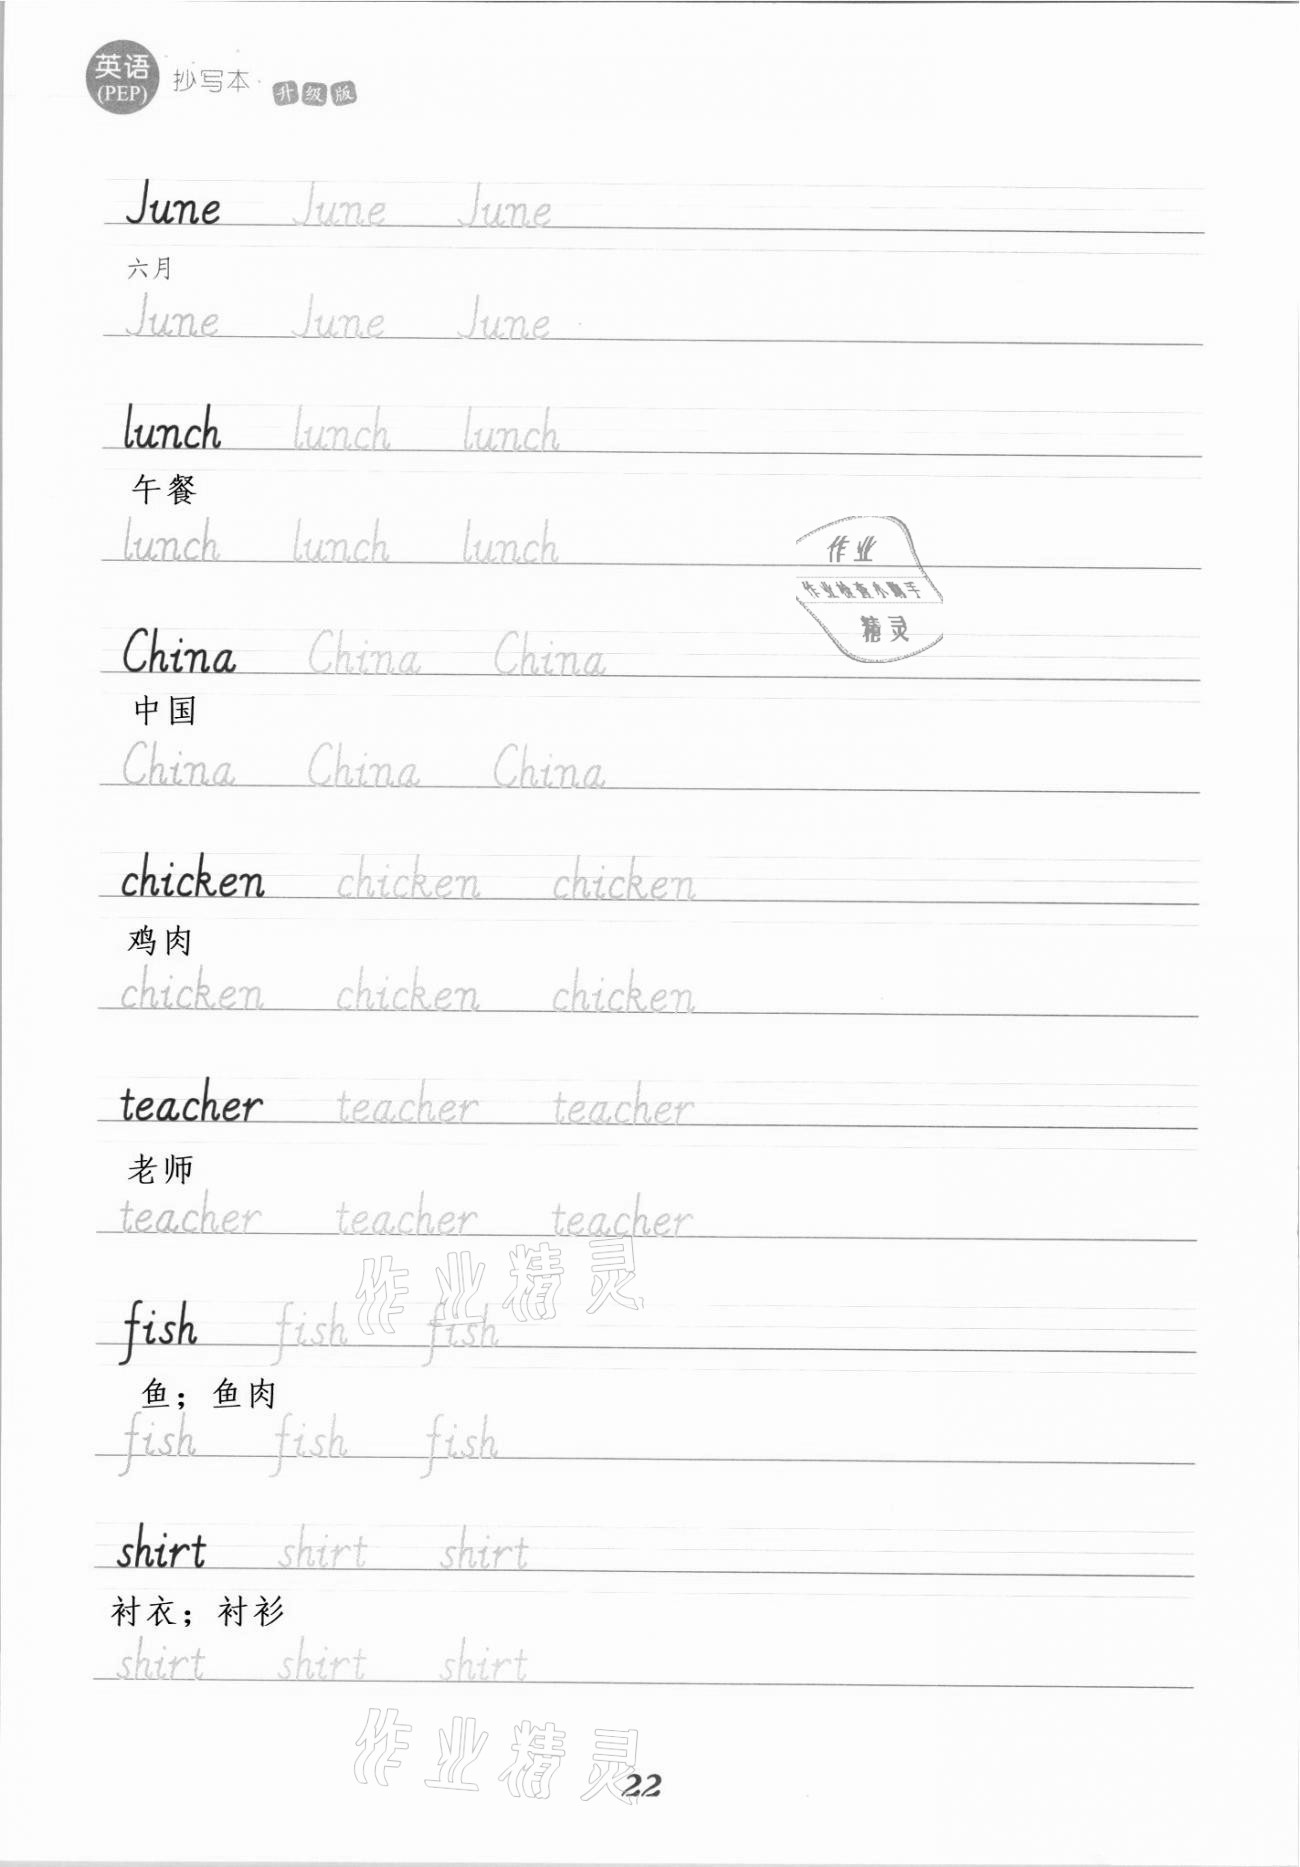 英语
(PEP)
抄写本
升级版
June June June
六月
June June June
lunch lunch lunch
午餐
lunch lunch lunch
作业
作业检查小助手
精灵
China China China
中国
China China China
chicken chicken chicken
鸡肉
chicken chicken chicken
teacher teacher teacher
老师
teacher teacher teacher
作业精灵
fish fish fish
鱼；鱼肉
fish fish fish
shirt shirt shirt
衬衣；衬衫
shirt shirt shirt
作业精灵
22